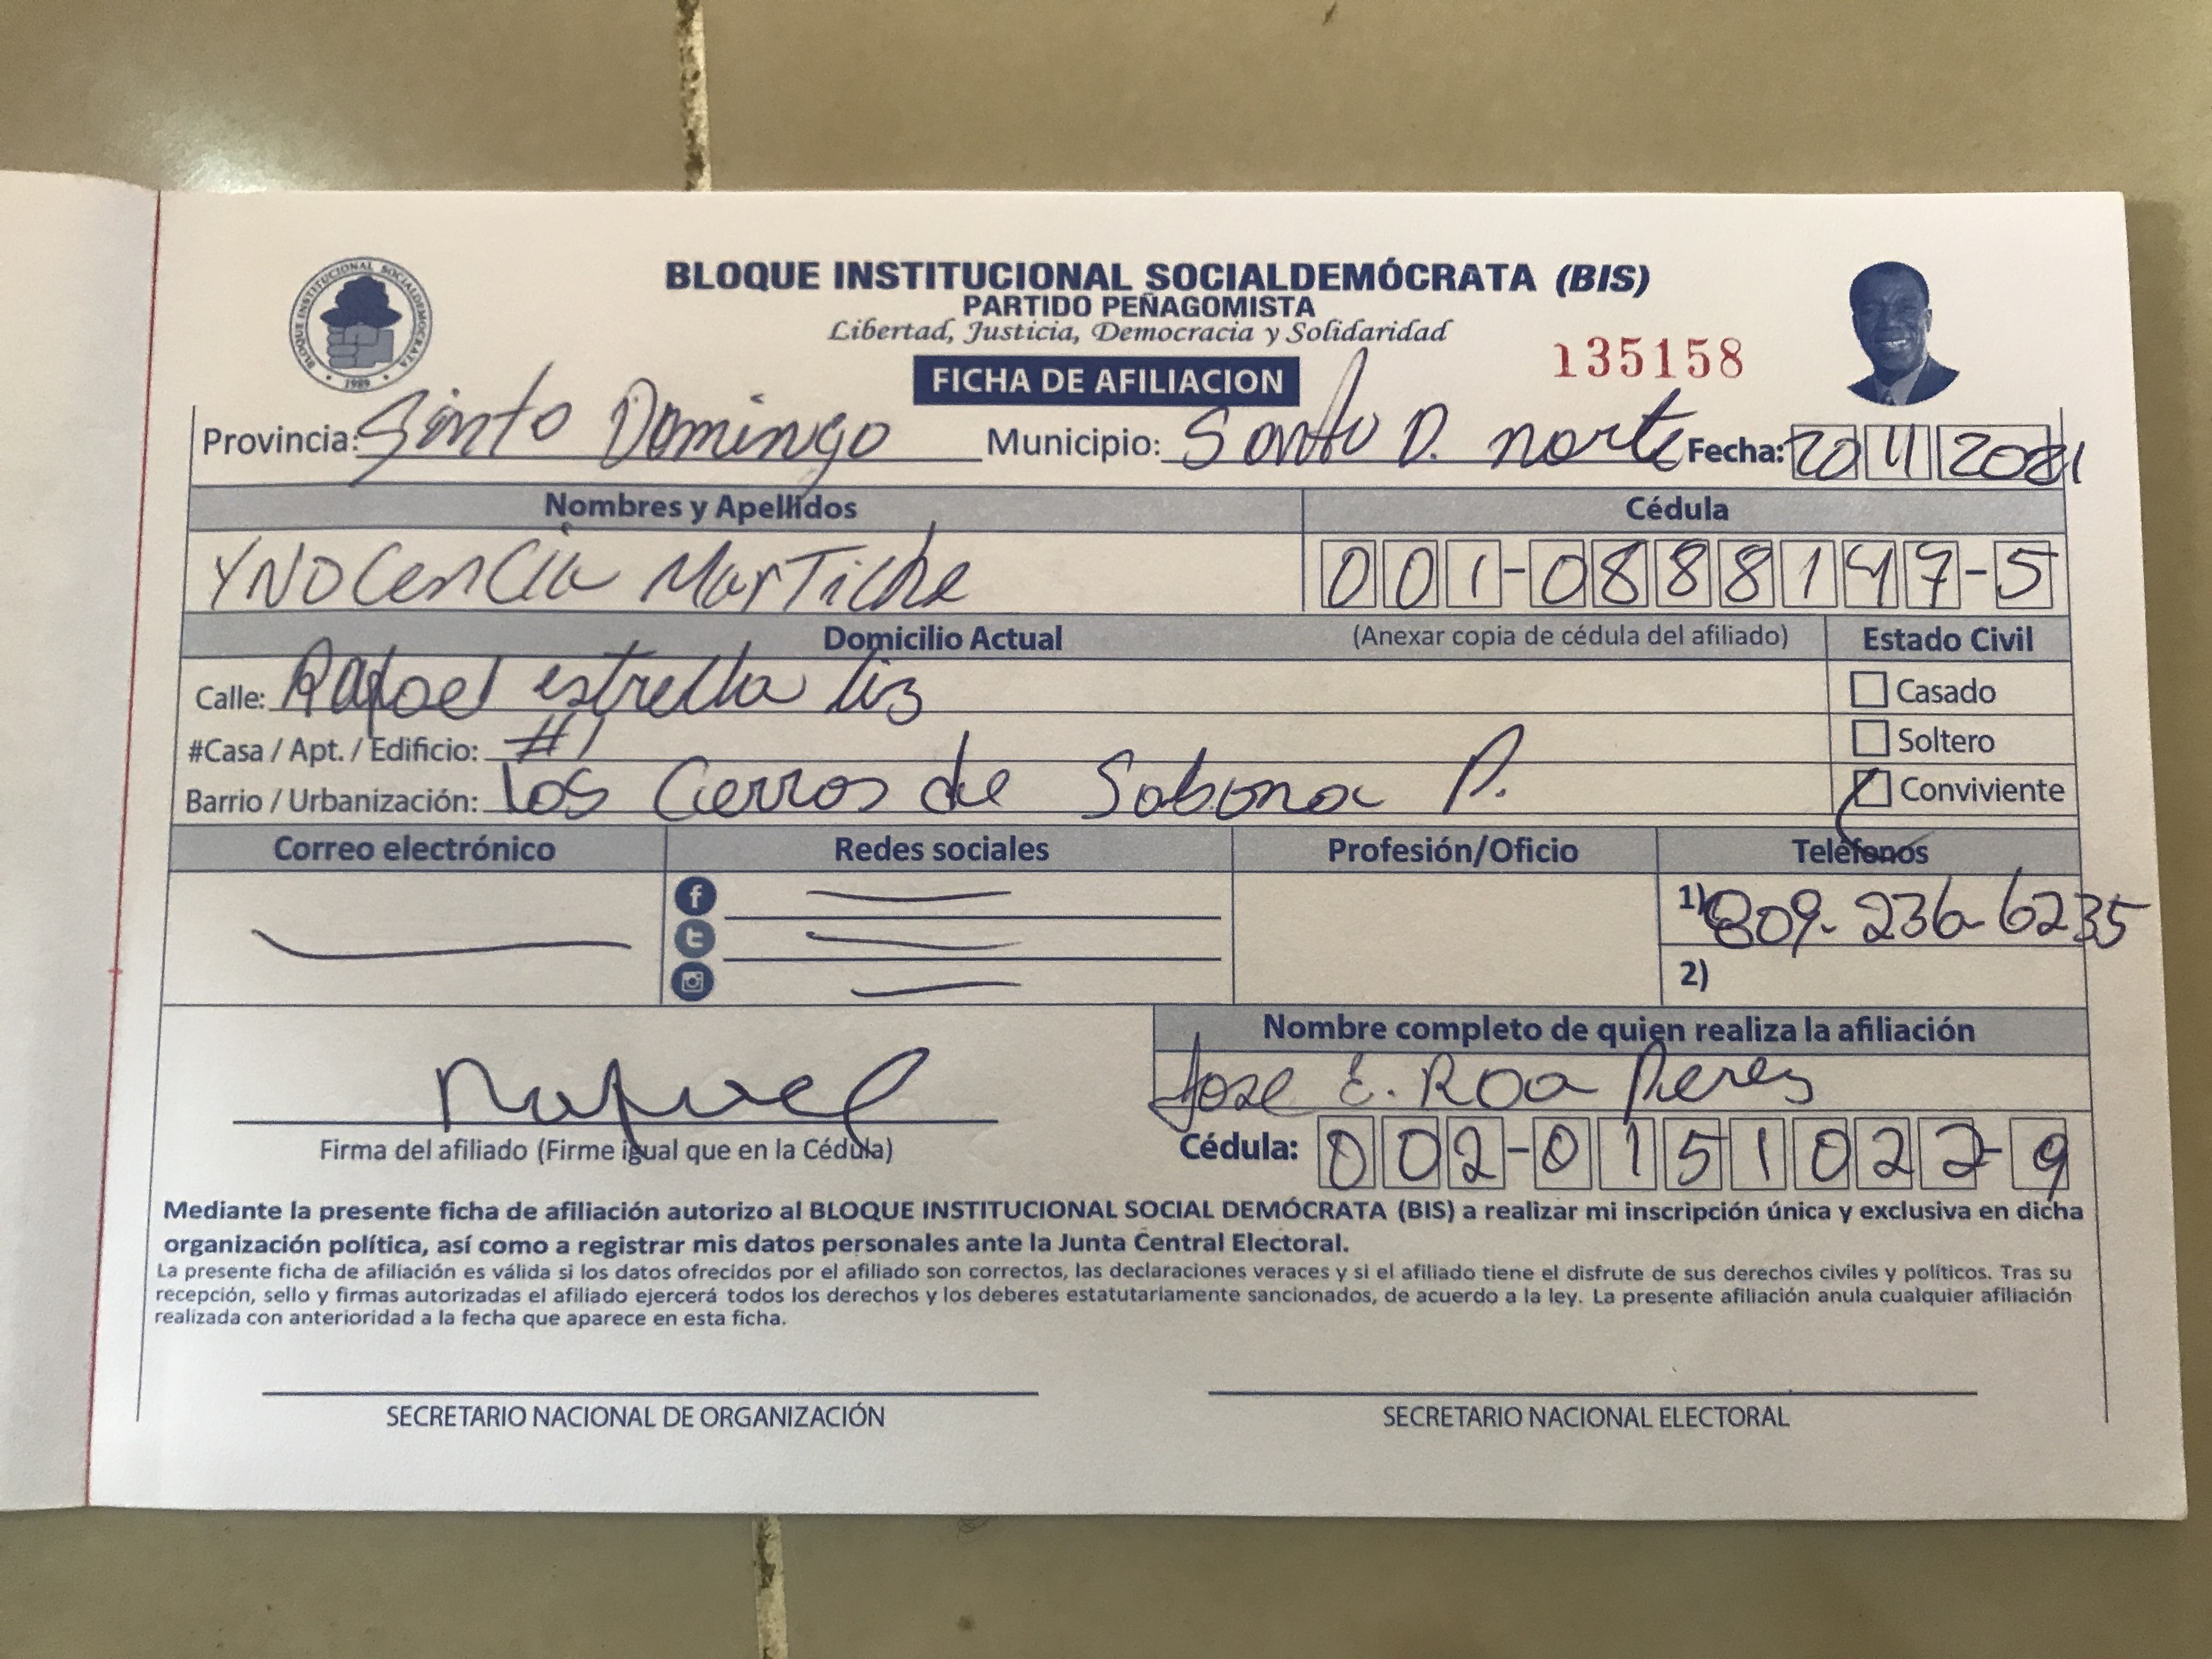 BLOQUE INSTITUCIONAL SOCIALDEMOCRATA
1989
BLOQUE INSTITUCIONAL SOCIALDEMÓCRATA (BIS)
PARTIDO PEÑAGOMISTA
Libertad, Justicia, Democracia y Solidaridad
135158
FICHA DE AFILIACION
Provincia: Santo Domingo Municipio: Santo D. norte Fecha: 20 11 2021
Nombres y Apellidos Cédula
YNOCenCia MarTiche 001-0888147-5
Domicilio Actual (Anexar copia de cédula del afiliado) Estado Civil
Calle: Rafael estrella liz Casado
#Casa / Apt. / Edificio: #1 Soltero
Barrio / Urbanización: Los Cerros de Sabana P. Conviviente
Correo electrónico Redes sociales Profesión/Oficio Teléfonos
1) 809-236-6235
2)
Nombre completo de quien realiza la afiliación
Jose E. Roa Peres
Firma del afiliado (Firme igual que en la Cédula) Cédula: 002-0151022-9
Mediante la presente ficha de afiliación autorizo al BLOQUE INSTITUCIONAL SOCIAL DEMÓCRATA (BIS) a realizar mi inscripción única y exclusiva en dicha
organización política, así como a registrar mis datos personales ante la Junta Central Electoral.
La presente ficha de afiliación es válida si los datos ofrecidos por el afiliado son correctos, las declaraciones veraces y si el afiliado tiene el disfrute de sus derechos civiles y políticos. Tras su
recepción, sello y firmas autorizadas el afiliado ejercerá todos los derechos y los deberes estatutariamente sancionados, de acuerdo a la ley. La presente afiliación anula cualquier afiliación
realizada con anterioridad a la fecha que aparece en esta ficha.
SECRETARIO NACIONAL DE ORGANIZACIÓN SECRETARIO NACIONAL ELECTORAL